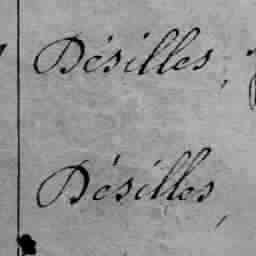 Désilles,
Désilles,